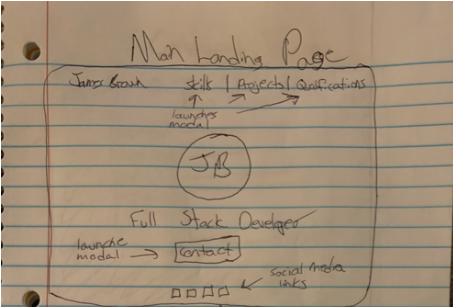 Main Landing Page
James Brown Skills | Projects | Qualifications
launches
modal
JB
Full Stack Developer
launche
modal
contact
social media
links